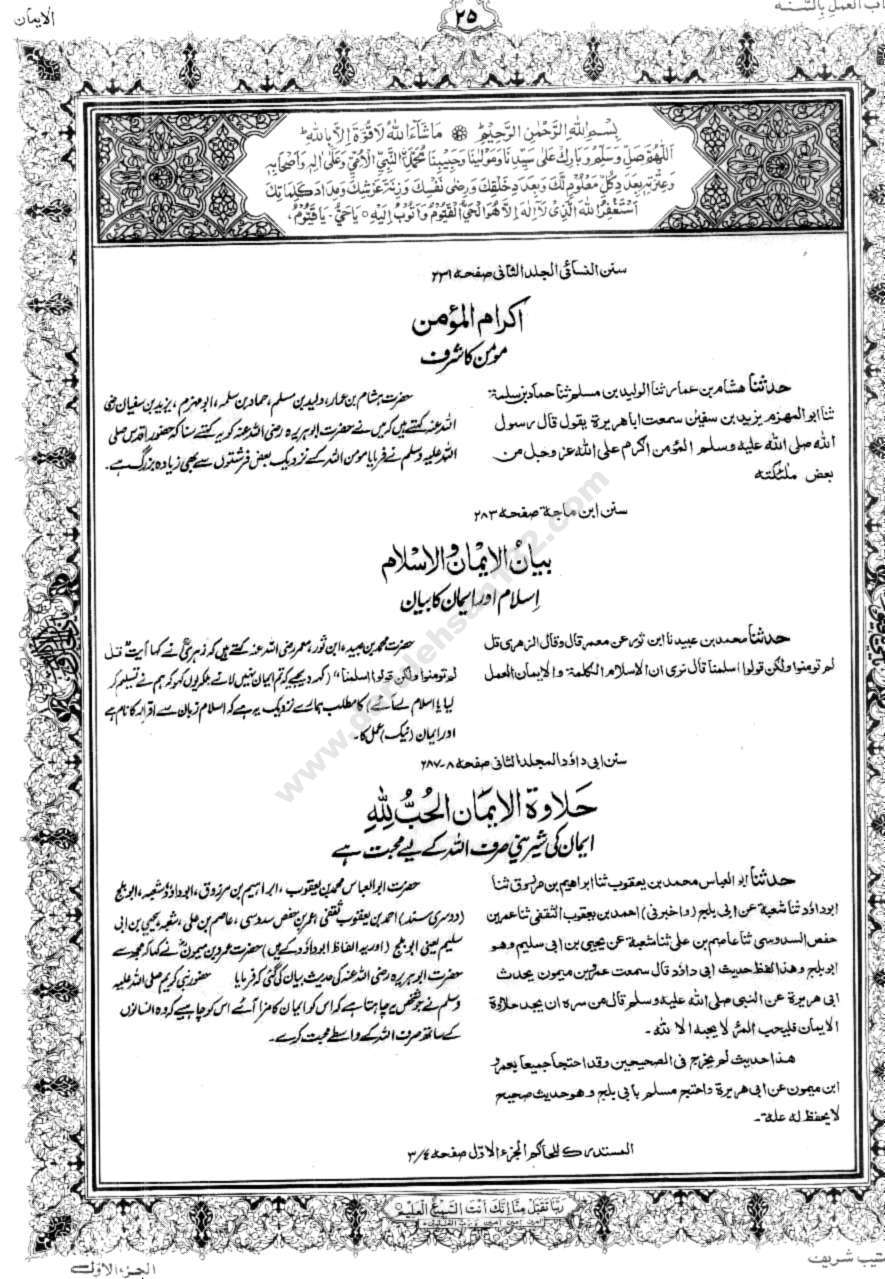 كتاب العمل بالسنة
٢٥
الايمان
بِسْمِ اللهِ الرَّحْمٰنِ الرَّحِيْمِ مَا شَآءَ اللهُ لَا قُوَّةَ اِلَّا بِاللهِ
اَللّٰهُمَّ صَلِّ وَسَلِّمْ وَبَارِكْ عَلٰى سَيِّدِنَا وَمَوْلٰينَا وَحَبِيْبِنَا مُحَمَّدِ ۨ النَّبِيِّ الْاُمِّيِّ وَعَلٰى اٰلِهٖ وَاَصْحَابِهٖ
وَعِتْرَتِهٖ بِعَدَدِ كُلِّ مَعْلُوْمٍ لَّكَ وَبِعَدَدِ خَلْقِكَ وَرِضٰى نَفْسِكَ وَزِنَةَ عَرْشِكَ وَمِدَادَ كَلِمَاتِكَ
اَسْتَغْفِرُ اللهَ الَّذِىْ لَآ اِلٰهَ اِلَّا هُوَ الْحَىُّ الْقَيُّوْمُ وَاَتُوْبُ اِلَيْهِ يَا حَىُّ يَا قَيُّوْمُ
سنن النسائى الجلد الثانى صفحه ٢٣١
اكرام المؤمن
مومن کا شرف
حدثنا هشام بن عمار ثنا الوليد بن مسلم ثنا حماد بن سلمة
ثنا ابو المهزم يزيد بن سفين سمعت ابا هريرة يقول قال رسول
الله صلى الله عليه وسلم المؤمن اكرم على الله عز وجل من
بعض ملئكته
حضرت ہشام بن عمار، ولید بن مسلم، حماد بن سلمہ، ابو مہزم، یزید بن سفیان رضی
اللہ عنہ کہتے ہیں کہ میں نے حضرت ابو ہریرہ رضی اللہ عنہ کو یہ کہتے سنا کہ حضور اقدس صلی
اللہ علیہ وسلم نے فرمایا مومن اللہ کے نزدیک بعض فرشتوں سے بھی زیادہ بزرگ ہے۔
سنن ابن ماجة صفحه ٢٨٣
بيان الايمان والاسلام
اسلام اور ایمان کا بیان
حدثنا محمد بن عبيد نا ابن ثور عن معمر قال وقال الزهرى قل
لم تومنوا ولكن قولوا اسلمنا قال نرى ان الاسلام الكلمة والايمان العمل
حضرت محمد بن عبید، ابن ثور، معمر رضی اللہ عنہ کہتے ہیں کہ زہری نے کہا آیت قل
لم تومنوا ولكن قولوا اسلمنا" (کہہ دیجیے کہ تم ایمان نہیں لائے بلکہ یوں کہو کہ ہم نے تسلیم کر
لیا یا اسلام لے آئے) کا مطلب ہمارے نزدیک یہ ہے کہ اسلام زبان سے اقرار کا نام ہے
اور ایمان (نیک) عمل کا۔
سنن ابى داؤد المجلد الثانى صفحه ٨-٢٨٧
حلاوة الايمان الحب لله
ایمان کی شیرینی صرف اللہ کے لیے محبت ہے
حدثنا ابو العباس محمد بن يعقوب ثنا ابراهيم بن مرزوق ثنا
ابوداؤد ثنا شعبة عن ابى بلج (واخبرنى) احمد بن يعقوب الثقفى ثنا عمر بن
حفص السدوسى ثنا عاصم بن على ثنا شعبة عن يحيى بن ابى سليم وهو
ابو بلج وهذا لفظ حديث ابى داؤد قال سمعت عمرو بن ميمون يحدث
ابى هريرة عن النبى صلى الله عليه وسلم قال من سره ان يجد حلاوة
الايمان فليحب المرء لا يحبه الا لله۔
هذا حديث لم يخرج فى الصحيحين وقد احتجا جميعا بعمرو
ابن ميمون عن ابى هريرة واحتج مسلم بابى بلج وهو حديث صحيح
لا يحفظ له علة۔
حضرت ابو العباس محمد بن یعقوب، ابراہیم بن مرزوق، ابوداؤد، شعبہ، ابو بلج
(دوسری سند) احمد بن یعقوب ثقفی، عمر بن حفص سدوسی، عاصم بن علی، شعبہ، یحیٰی بن ابی
سلیم یعنی ابو بلج (اور یہ الفاظ ابوداؤد کے ہیں) حضرت عمرو بن میمون نے کہا کہ مجھ سے
حضرت ابو ہریرہ رضی اللہ عنہ کی حدیث بیان کی گئی کہ فرمایا حضور نبی کریم صلی اللہ علیہ
وسلم نے جو شخص یہ چاہتا ہے کہ اس کو ایمان کا مزا آئے اس کو چاہیے کہ وہ انسانوں
کے ساتھ صرف اللہ کے واسطے محبت کرے۔
المستدرك للحاكم الجزء الاوّل صفحه ٣/٤
رَبَّنَا تَقَبَّلْ مِنَّا اِنَّكَ اَنْتَ السَّمِيْعُ الْعَلِيْمُ
الجزء الاوّل
www.darulehsan192.com